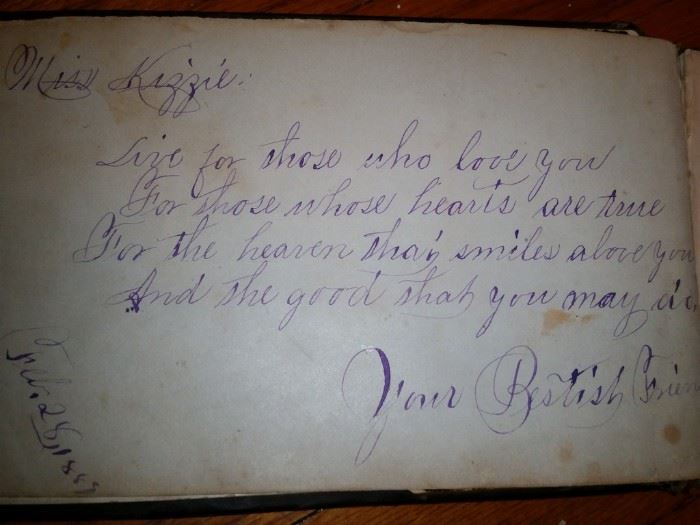 Miss Kizzie.
Live for those who love you
For those whose hearts are true
For the heaven that smiles above you
And the good that you may do
Your Bestish Frien
Feb. 28, 1889